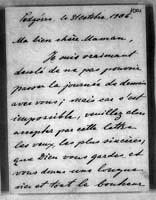 le 31 octobre, 1906.
Ma bien chère Maman,
Je suis vraiment
désolé de ne pas pouvoir
passer la journée de demain
avec vous; mais cas c'est
impossible, veuillez alors
accepter par cette lettre
les vœux, les plus sincères;
que Dieu vous garde, et
vous donne une longue
vie et tout le bonheur